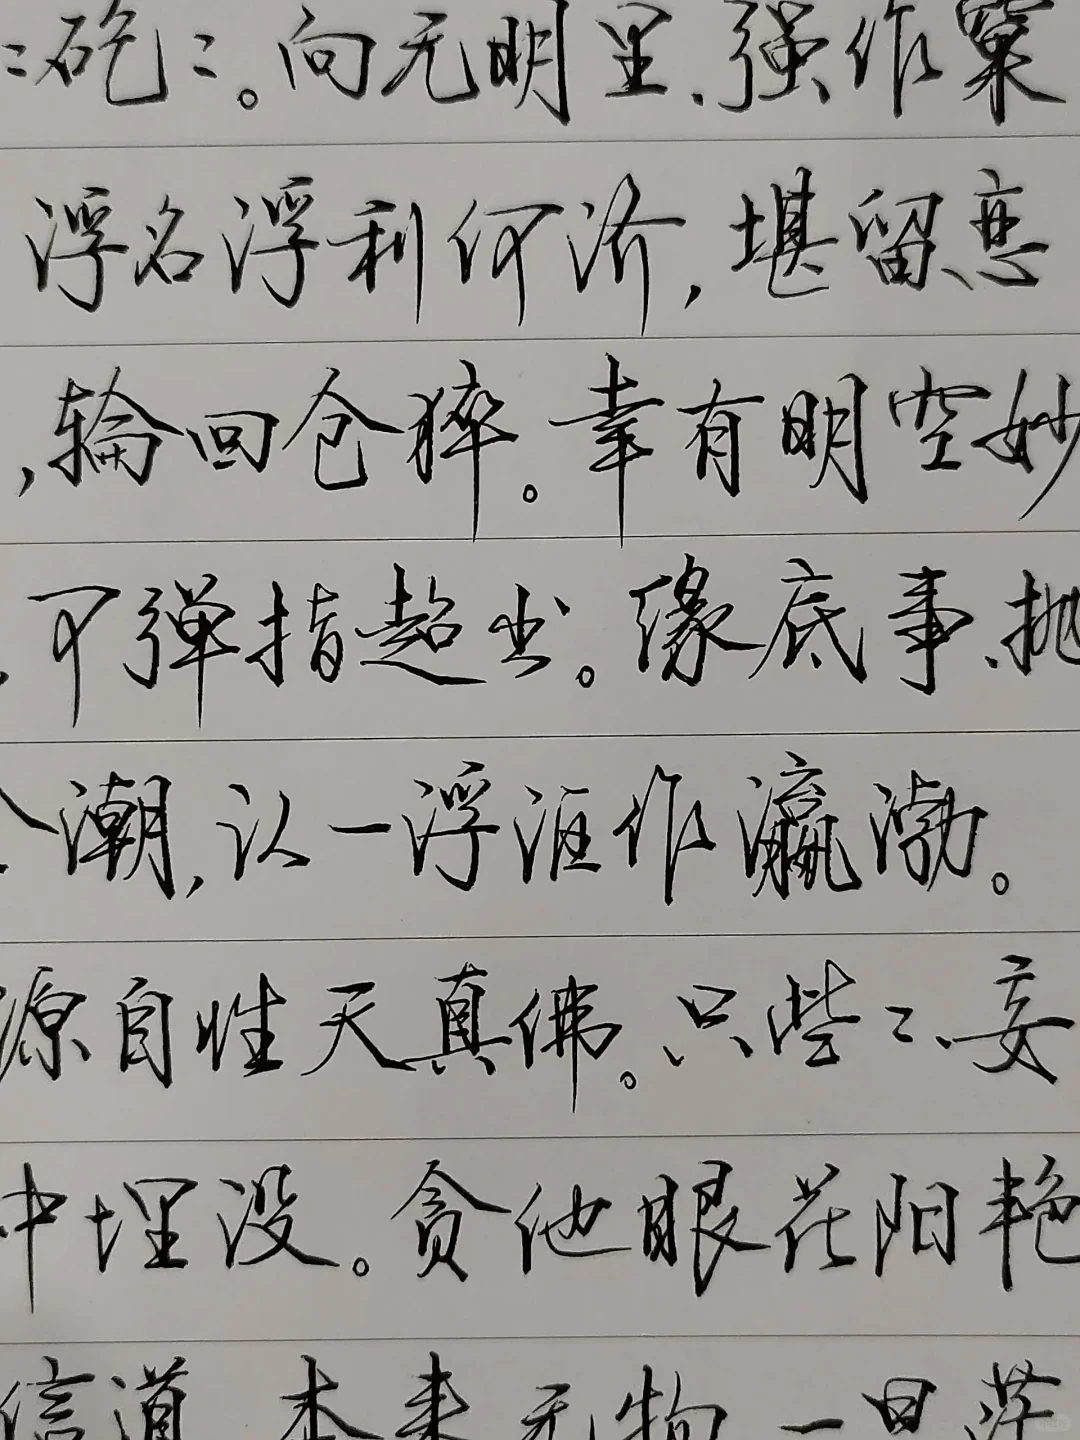 ::矻::。向无明里、强作窠
浮名浮利何济,堪留恋
,轮回仓猝。幸有明空妙
,可弹指超出。缘底事、抛
潮,认一浮沤作瀛渤。
源自性天真佛。只些::、妄
中埋没。贪他眼花阳艳
信道 本来无物 一旦茫